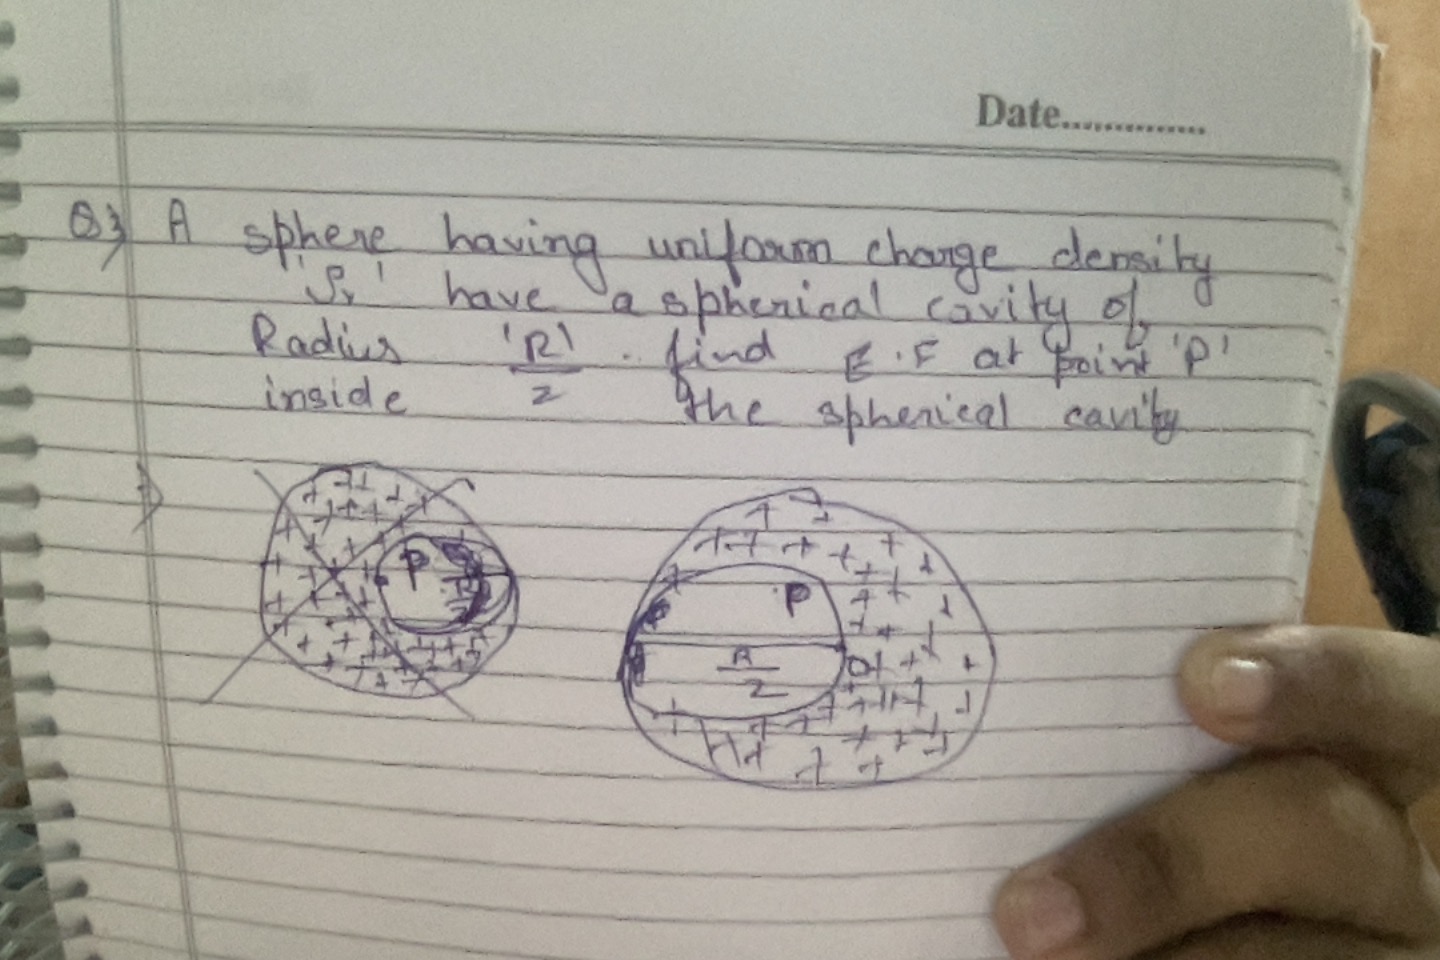 Date..............
Q3 A sphere having uniform charge density
'ρv' have a spherical cavity of
Radius 'R'/2 . find E.F at point 'P'
inside the spherical cavity
P R/2
P
R/2